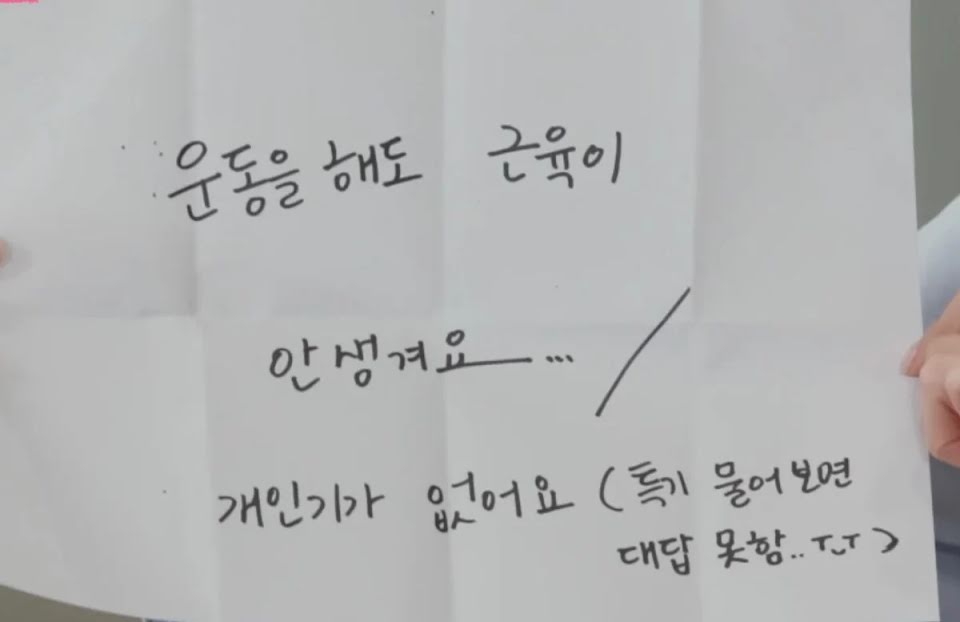 운동을 해도 근육이
안생겨요ㅡ... /
개인기가 없어요 (특기 물어보면
대답 못함.. ㅜ.ㅜ)